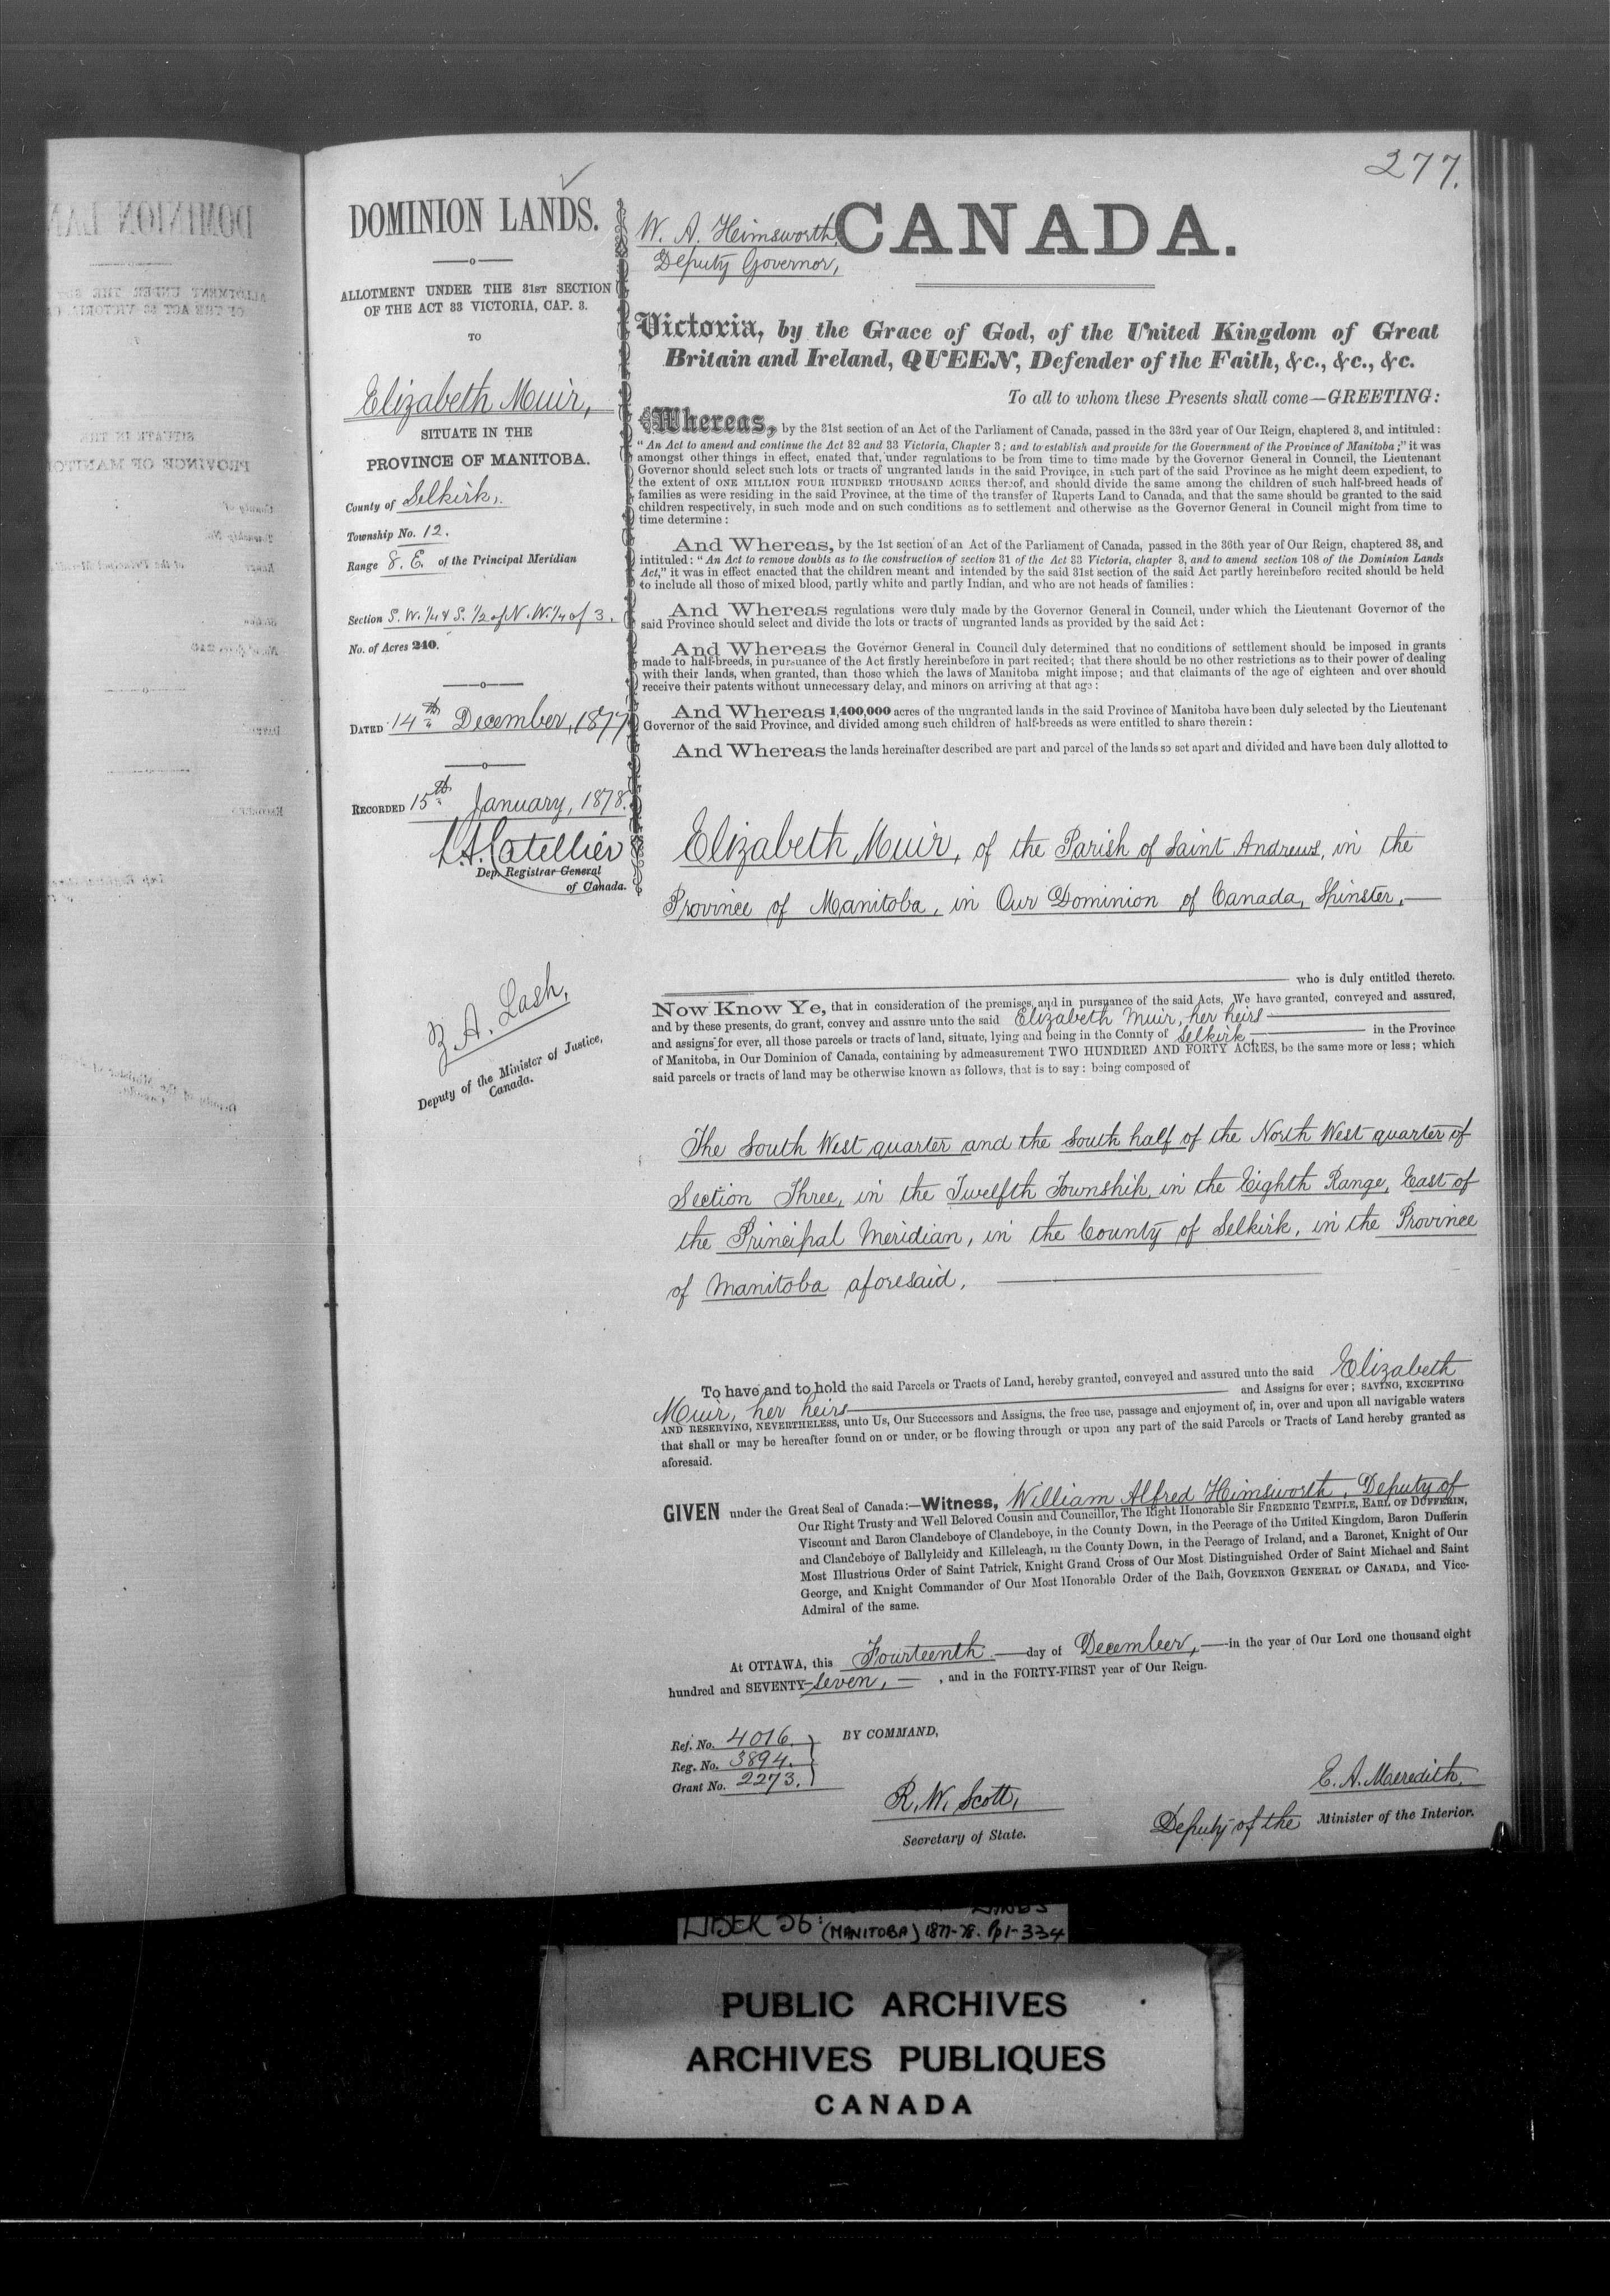 277.
DOMINION LANDS.
ALLOTMENT UNDER THE 31ST SECTION
OF THE ACT 33 VICTORIA, CAP. 3.
TO
Elizabeth Muir,
SITUATE IN THE
PROVINCE OF MANITOBA.
County of Selkirk,
Township No. 12.
Range 8. E. of the Principal Meridian
Section S. W. 1/4 & S. 1/2 of N. W. 1/4 of 3.
No. of Acres 240.
DATED 14th December, 1877
RECORDED 15th January, 1878.
L.A. Catellier
Dep. Registrar General
of Canada.
Z. A. Lash,
Deputy of the Minister of Justice,
Canada.
W. A. Heimsworth,
Deputy Governor,
CANADA.
Victoria, by the Grace of God, of the United Kingdom of Great
Britain and Ireland, QUEEN, Defender of the Faith, &c., &c., &c.
To all to whom these Presents shall come—GREETING:
Whereas, by the 31st section of an Act of the Parliament of Canada, passed in the 33rd year of Our Reign, chaptered 3, and intituled:
"An Act to amend and continue the Act 32 and 33 Victoria, Chapter 3; and to establish and provide for the Government of the Province of Manitoba;" it was
amongst other things in effect, enated that, under regulations to be from time to time made by the Governor General in Council, the Lieutenant
Governor should select such lots or tracts of ungranted lands in the said Province, in such part of the said Province as he might deem expedient, to
the extent of ONE MILLION FOUR HUNDRED THOUSAND ACRES thereof, and should divide the same among the children of such half-breed heads of
families as were residing in the said Province, at the time of the transfer of Ruperts Land to Canada, and that the same should be granted to the said
children respectively, in such mode and on such conditions as to settlement and otherwise as the Governor General in Council might from time to
time determine:
And Whereas, by the 1st section of an Act of the Parliament of Canada, passed in the 36th year of Our Reign, chaptered 38, and
intituled: "An Act to remove doubts as to the construction of section 31 of the Act 33 Victoria, chapter 3, and to amend section 108 of the Dominion Lands
Act," it was in effect enacted that the children meant and intended by the said 31st section of the said Act partly hereinbefore recited should be held
to include all those of mixed blood, partly white and partly Indian, and who are not heads of families:
And Whereas regulations were duly made by the Governor General in Council, under which the Lieutenant Governor of the
said Province should select and divide the lots or tracts of ungranted lands as provided by the said Act:
And Whereas the Governor General in Council duly determined that no conditions of settlement should be imposed in grants
made to half-breeds, in pursuance of the Act firstly hereinbefore in part recited; that there should be no other restrictions as to their power of dealing
with their lands, when granted, than those which the laws of Manitoba might impose; and that claimants of the age of eighteen and over should
receive their patents without unnecessary delay, and minors on arriving at that age:
And Whereas 1,400,000 acres of the ungranted lands in the said Province of Manitoba have been duly selected by the Lieutenant
Governor of the said Province, and divided among such children of half-breeds as were entitled to share therein:
And Whereas the lands hereinafter described are part and parcel of the lands so set apart and divided and have been duly allotted to
Elizabeth Muir, of the Parish of Saint Andrews, in the
Province of Manitoba, in Our Dominion of Canada, Spinster,
who is duly entitled thereto.
Now Know Ye, that in consideration of the premises, and in pursuance of the said Acts, We have granted, conveyed and assured,
and by these presents, do grant, convey and assure unto the said Elizabeth Muir, her heirs
and assigns for ever, all those parcels or tracts of land, situate, lying and being in the County of Selkirk in the Province
of Manitoba, in Our Dominion of Canada, containing by admeasurement TWO HUNDRED AND FORTY ACRES, be the same more or less; which
said parcels or tracts of land may be otherwise known as follows, that is to say: being composed of
The South West quarter and the South half of the North West quarter of
Section Three, in the Twelfth Township, in the Eighth Range, East of
the Principal Meridian, in the County of Selkirk, in the Province
of Manitoba aforesaid,
To have and to hold the said Parcels or Tracts of Land, hereby granted, conveyed and assured unto the said Elizabeth
Muir, her heirs and Assigns for ever; SAVING, EXCEPTING
AND RESERVING, NEVERTHELESS, unto Us, Our Successors and Assigns, the free use, passage and enjoyment of, in, over and upon all navigable waters
that shall or may be hereafter found on or under, or be flowing through or upon any part of the said Parcels or Tracts of Land hereby granted as
aforesaid.
GIVEN under the Great Seal of Canada:—Witness, William Alfred Heimsworth, Deputy of
Our Right Trusty and Well Beloved Cousin and Councillor, The Right Honorable Sir FREDERIC TEMPLE, EARL OF DUFFERIN,
Viscount and Baron Clandeboye of Clandeboye, in the County Down, in the Peerage of the United Kingdom, Baron Dufferin
and Clandeboye of Ballyleidy and Killeleagh, in the County Down, in the Peerage of Ireland, and a Baronet, Knight of Our
Most Illustrious Order of Saint Patrick, Knight Grand Cross of Our Most Distinguished Order of Saint Michael and Saint
George, and Knight Commander of Our Most Honorable Order of the Bath, GOVERNOR GENERAL OF CANADA, and Vice-
Admiral of the same.
At OTTAWA, this Fourteenth day of December, in the year of Our Lord one thousand eight
hundred and SEVENTY-Seven, , and in the FORTY-FIRST year of Our Reign.
Ref. No. 4016.
Reg. No. 3894.
Grant No. 2273.
BY COMMAND,
R. W. Scott,
Secretary of State.
E. A. Meredith,
Deputy of the Minister of the Interior.
LIBER 56: LANDS
(MANITOBA) 1877-78. Pp 1-334
PUBLIC ARCHIVES
ARCHIVES PUBLIQUES
CANADA